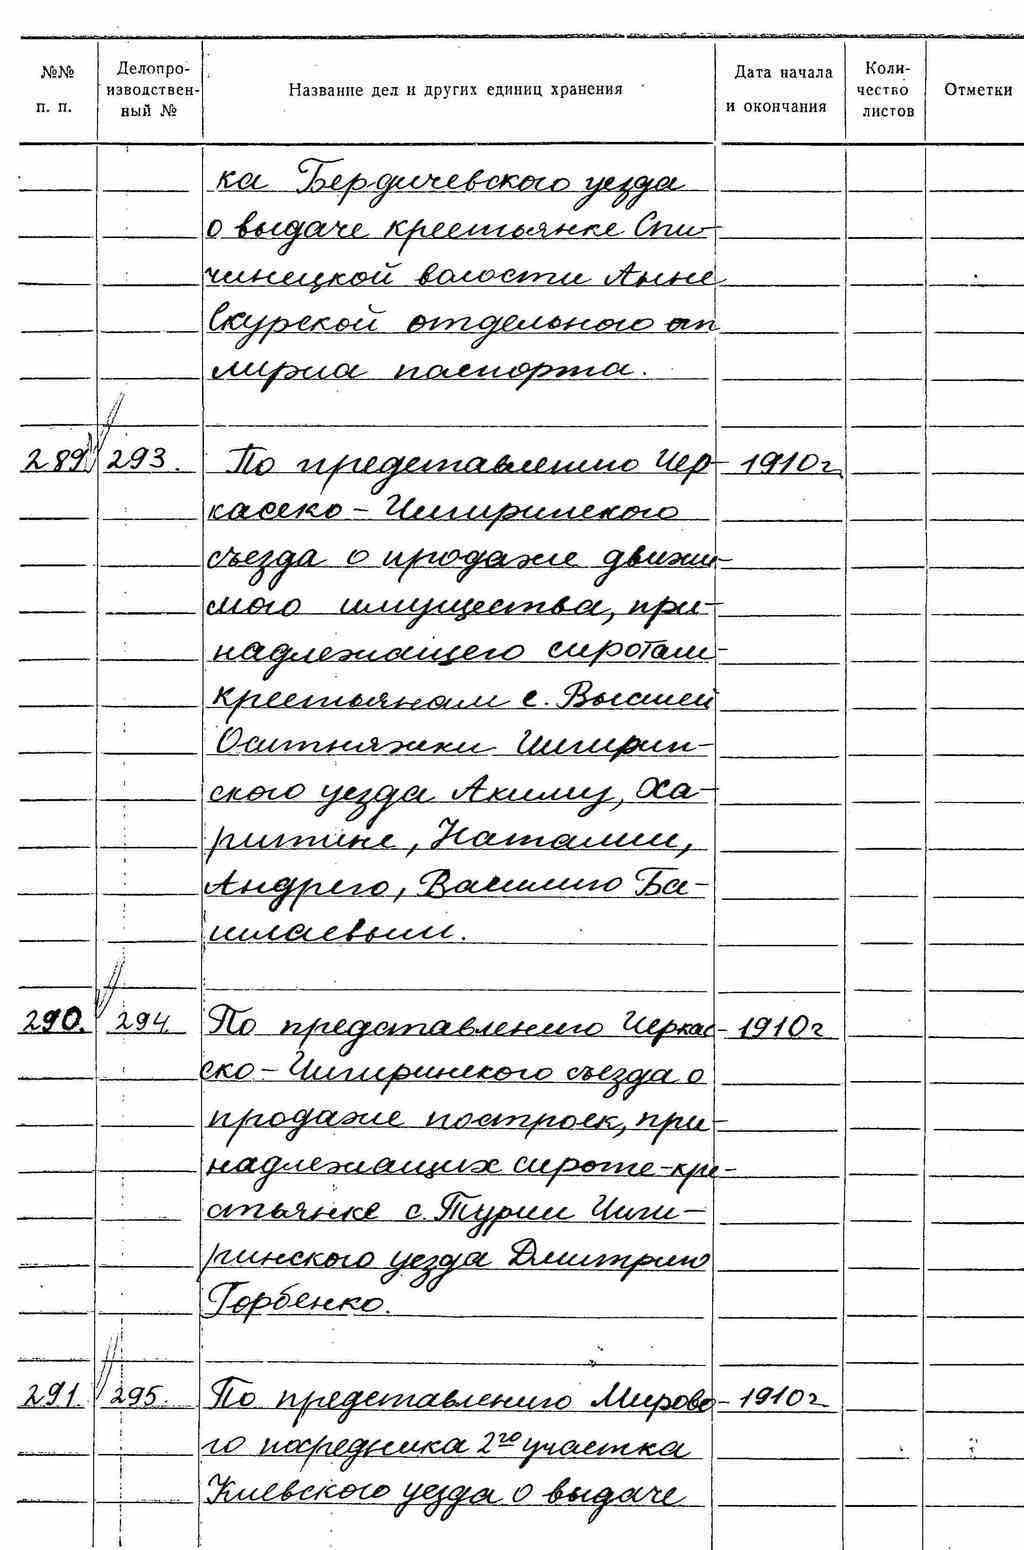 №№ п. п. Делопроизводственный № Название дел и других единиц хранения Дата начала и окончания Количество листов Отметки
ка Бердичевского уезда
о выдаче крестьянке Спи-
чинецкой волости Анне
Скурской отдельного от
мужа паспорта.
289 293. По представлению Чер- 1910г.
касско - Чигиринского
съезда о продаже движи-
мого имущества, при-
надлежащего сиротам-
крестьянам с. Высшей
Оситняжки Чигирин-
ского уезда Акиму, Ха-
ритине, Наталии,
Андрею, Василию Ба-
шлаевым.
290. 294. По представлению Черкас- 1910г
ско - Чигиринского съезда о
продаже построек, при-
надлежащих сироте-кре-
стьянке с. Турии Чиги-
ринского уезда Дмитрию
Горбенко.
291. 295. По представлению Мирово- 1910г
го посредника 2го участка
Киевского уезда о выдаче